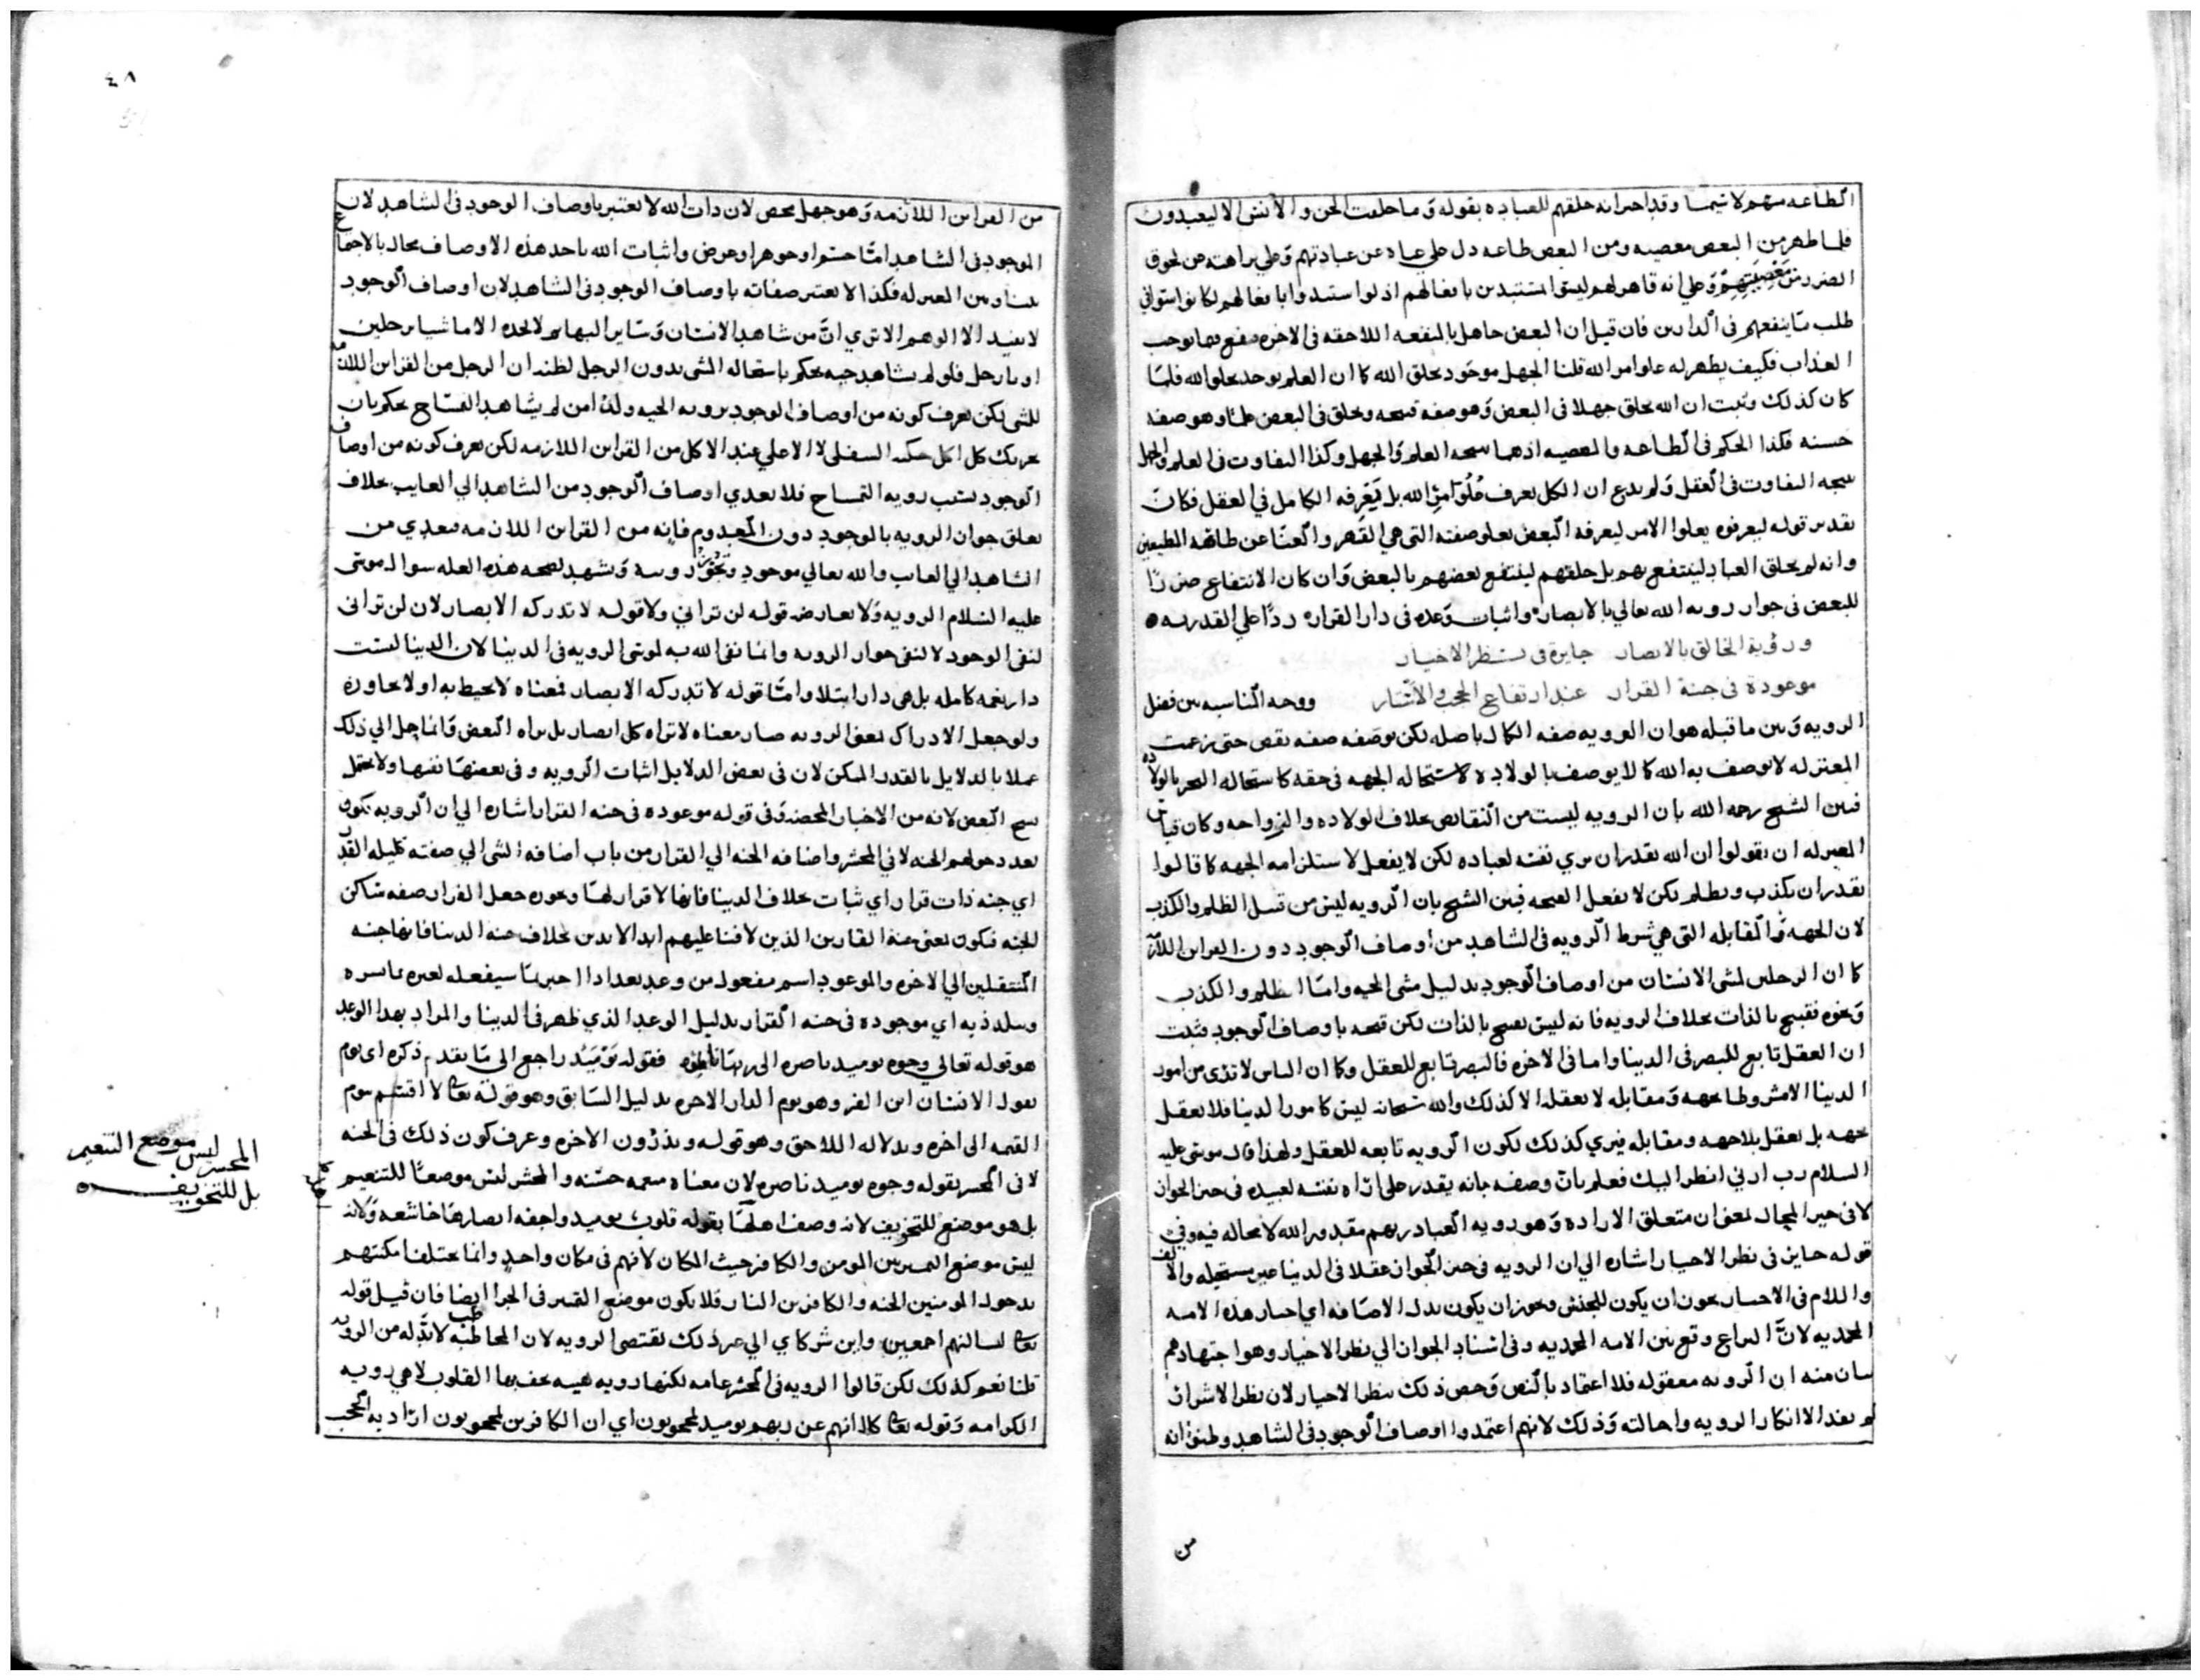 الطاعه منهم لا سيما وقد اخبر انه خلقهم للعباده بقوله وما خلقت الجن والانس الا ليعبدون
فلما ظهر من البعض معصيه ومن البعض طاعه دل علي غناه عن عبادتهم وعلي براهته عن لحوق
الضرر من معصيتهم وعلي انه قاهر لهم ليسوا مستبدين بافعالهم اذ لو استبدوا بافعالهم لكانوا استووا في
طلب ما ينفعهم في الدارين فان قيل ان البعض جاهل بالمنفعه اللاحقه في الاخره فيقع فيما يوجب
العذاب فكيف يظهر له علو امر الله قلنا الجهل موجود بخلق الله كما ان العلم يوجد بخلق الله فلما
كان كذلك وثبت ان الله يخلق جهلا في البعض وهو صفه قبيحه ويخلق في البعض علما وهو صفه
حسنه فكذا الحكم في الطاعه والمعصيه اذ هما نتيجه العلم والجهل وكذا التفاوت في العلم والجهل
نتيجه التفاوت في العقل ولم يدع ان الكل يعرف علو امر الله بل يعرفه الكامل في العقل فكان
تقدير قوله ليعرفوه بعلو الامر ليعرفه البعض بعلو صفته التي هي القهر والغنا عن طاعه المطيعين
وانه لم يخلق العباد لينتفع بهم بل خلقهم لينتفع بعضهم بالبعض وان كان الانتفاع ضررا
للبعض في جواز رويه الله تعالي بالابصار واثبات وعده في دار القرار ردا علي القدريه
ورؤية الخالق بالابصار جايزة في نظر الاخيار
موعودة في جنة القرار عند ارتفاع الحجب والاستار ووجه المناسبه بين فصل
الرويه وبين ما قبله هو ان الرويه صفه الكمال باصله لكن بوصفه صفه نقص حتي زعمت
المعتزله لا يوصف به الله كما لا يوصف بالولاده لاستحاله الجهه في حقه كاستحاله التحيز بالولاده
فبين الشيخ رحمه الله بان الرويه ليست من النقائص بخلاف الولاده والزواجه وكان قياس
المعتزله ان يقولوا ان الله يقدر ان يري نفسه لعباده لكن لا يفعل لاستلزامه الجهه كما قالوا
يقدر ان يكذب ويظلم لكن لا يفعل لقبحه فبين الشيخ بان الرويه ليس من قبيل الظلم والكذب
لان الجهه والمقابله التي هي شرط الرويه في الشاهد من اوصاف الوجود دون القراين اللازمه
كما ان الرجلين لمشي الانسان من اوصاف الوجود بدليل مشي الحيه واما الظلم والكذب
ونحوه فقبيح بالذات بخلاف الرويه فانه ليس بقبيح بالذات لكن قبحه باوصاف الوجود فثبت
ان العقل تابع للبصر في الدينا واما في الاخره فالبصر تابع للعقل وكما ان الناس لا تري من امور
الدينا الامشروطا بجهه ومقابله لا يعقله الا كذلك والله سبحانه ليس كامور الدينا فلا يعقل
بجهه بل يعقل بلا جهه ومقابله فيري كذلك لكون الرويه تابعه للعقل ولهذا قال موسي عليه
السلام رب ارني انظر اليك فعلم بان وصفه بانه يقدر علي اراه نفسه لعبيده في حيز الجواز
لا في حيز المحال لمعني ان متعلق الاراده وهو رويه العباد ربهم مقدور الله لا محاله فيه وفي
قوله جايز في نظر الاخيار اشاره الي ان الرويه في حيز الجواز عقلا في الدينا غير مستحيله والالف
واللام في الاخيار يجوز ان يكون للجنس ويجوز ان يكون بدل الاضافه اي اخيار هذه الامه
المحمديه لان النزاع وقع بين الامه المحمديه وفي اسناد الجواز الي نظر الاخيار وهو اجتهادهم
بيان منه ان الرويه معقوله فلا اعتماد بالنص وخص ذلك بنظر الاخيار لان نظر الاشرار
لم يفد الا انكار الرويه واحالته وذلك لانهم اعتمدوا اوصاف الوجود في الشاهد وظنوا انه
من
٤٨
من القراين اللازمه وهو جهل محض لان ذات الله لا يعتبر باوصاف الوجود في الشاهد لان
الموجود في الشاهد اما جسم او جوهر او عرض واثبات الله باحد هذه الاوصاف محال بالاجماع
بيننا وبين المعتزله فكذا لا يعتبر صفاته باوصاف الوجود في الشاهد لان اوصاف الوجود
لا يفيد الا الوهم الا تري ان من شاهد الانسان وساير البهايم لا يجده الا ماشيا برجلين
او بارجل فلو لم يشاهد حيه يحكم باستحاله المشي بدون الرجل لظنه ان الرجل من القراين اللازمه
للمشي لكن يعرف كونه من اوصاف الوجود برويه الحيه ولذا من لم يشاهد التمساح يحكم بان
تحريك كل اكل حنكه السفلي لا الاعلي عند الاكل من القراين اللازمه لكن يعرف كونه من اوصاف
الوجود بسبب رويه التمساح فلا يعدي اوصاف الوجود من الشاهد الي الغايب بخلاف
تعلق جواز الرويه بالوجود دون المعدوم فانه من القراين اللازمه فيعدي من
الشاهد الي الغايب والله تعالي موجود وتجوز رويته ويشهد لصحه هذه العله سوال موسي
عليه السلام الرويه ولا يعارضه قوله لن تراني ولا قوله لا تدركه الابصار لان لن تراني
لنفي الوجود لا لنفي جواز الرويه وانما نفي الله به لموسي الرويه في الدينا لان الدينا ليست
دار نعمه كامله بل هي دار ابتلا واما قوله لا تدركه الابصار فمعناه لا يحيط به او لا يحاوره
ولو جعل الادراك بمعني الرويه صار معناه لا تراه كل ابصار بل يراه البعض وانما حمل الي ذلك
عملا بالدلايل بالقدر الممكن لان في بعض الدلايل اثبات الرويه وفي بعضها نفيها ولا يحتمل
نسخ البعض لانه من الاخبار المحضه وفي قوله موعوده في جنه القرار اشاره الي ان الرويه تكون
بعد دخولهم الجنه لا في المحشر واضافه الجنه الي القرار من باب اضافه الشي الي صفته كليله القدر
اي جنه ذات قرار اي ثبات بخلاف الدينا فانها لا قرار لها ويجوز جعل القرار صفه ساكن
الجنه فيكون بمعني جنه القارين الذين لا فنا عليهم ابد الابدين بخلاف جنه الدينا فانها جنه
المنتقلين الي الاخره والموعود اسم مفعول من وعد يعد اذا اخبر بما سيفعله لغيره مما يسره
ويتلذذ به اي موجوده في جنه القرار بدليل الوعد الذي ظهر في الدينا والمراد بهذا الوعد
هو قوله تعالي وجوه يوميد ناضره الي ربها ناظره فقوله يوميد راجع الي ما تقدم ذكره اي يوم
يقول الانسان اين المفر وهو يوم الدار الاخره بدليل السابق وهو قوله تعالي لا اقسم بيوم
القيمه الي اخره وبدلاله اللاحق وهو قوله ويذرون الاخره وعرف كون ذلك في الجنه
لا في المحشر بقوله وجوه يوميد ناضره لان معناه منعمه حسنه والمحشر ليس موضعا للتنعيم
بل هو موضع للتخويف لانه وصف اهلها بقوله قلوب يوميد واجفه ابصارها خاشعه ولانه
ليس موضع التمييز بين المومن والكافر من حيث المكان لانهم في مكان واحد وانما يختلف امكنتهم
بدخول المومنين الجنه والكافرين النار فلا يكون موضع التمييز في الجزا ايضا فان قيل قوله
تعالي لنسالنهم اجمعين واين شركاي الي غير ذلك يقتضي الرويه لان المخاطبه لا بد له من الرويه
قلنا نعم كذلك لكن قالوا الرويه في المحشر عامه لكنها رويه هيبه يخفيها القلوب لا هي رويه
الكرامه وقوله تعالي كلا انهم عن ربهم يوميد لمحجوبون اي ان الكافرين لمحجوبون اراد به الحجب
المحشر ليس موضع التنعيم
بل للتخويف